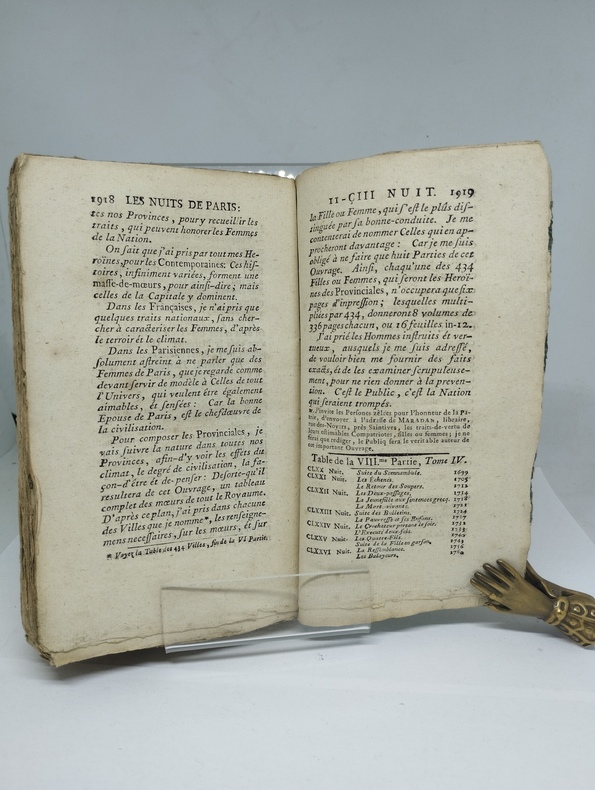 1918 LES NUITS DE PARIS:
tes nos Provinces, pour y recueillir les
traits, qui peuvent honorer les Femmes
de la Nation.
On sait que j'ai pris par tout mes He-
roïnes, pour les Contemporaines: Ces his-
toires, infiniment variées, forment une
masse-de-mœurs, pour ainsi-dire; mais
celles de la Capitale y dominent.
Dans les Françaises, je n'ai pris que
quelques traits nationaux, sans cher-
cher à caractériser les Femmes, d'après
le terroir et le climat.
Dans les Parisiennes, je me suis ab-
solument astreint à ne parler que des
Femmes de Paris, que je regarde comme
devant servir de modèle à Celles de tout
l'Univers, qui veulent être également
aimables, et sensées: Car la bonne
Epouse de Paris, est le chefdœuvre de
la civilisation.
Pour composer les Provinciales, je
vais suivre la nature dans toutes nos
Provinces, afin-d'y voir les effets du
climat, le degré de civilisation, la fa-
çon-d'être et de-penser: Desorte-qu'il
resultera de cet Ouvrage, un tableau
complet des mœurs de tout le Royaume.
D'après ce plan, j'ai pris dans chacune
des Villes que je nomme*, les renseigne-
mens necessaires, sur les mœurs, et sur
* Voyez la Table des 434 Villes, fin de la VI Partie.
11-ÇIII NUIT. 1919
la Fille ou Femme, qui s'est le plus dis-
tinguée par sa bonne-conduite. Je me
contenterai de nommer Celles qui en ap-
procheront davantage: Car je me suis
obligé à ne faire que huit Parties de cet
Ouvrage. Ainsi, chaqu'une des 434
Filles ou Femmes, qui seront les Heroï-
nes des Provinciales, n'occupera que six
pages d'inpression; lesquelles multi-
pliées par 434, donneront 8 volumes de
336 pages chacun, ou 16 feuilles in-12.
J'ai prié les Hommes instruits et ver-
tueux, ausquels je me suis adressé,
de vouloir bien me fournir des faits
exacts, et de les examiner scrupuleuse-
ment, pour ne rien donner à la preven-
tion. C'est le Public, c'est la Nation
qui seraient trompés.
* J'invite les Personnes zélées pour l'honneur de la Pa-
trie, d'envoyer à l'adresse de MARADAN, libraire,
rue-des-Noyers, près Saintives, les traits-de-vertu de
leurs estimables Compatriotes, filles ou femmes; je ne
ferai que rediger, le Publiq sera le veritable auteur de
cet important Ouvrage.
Table de la VIII.me Partie, Tome IV.
CLXX Nuit. Suite du Somnambule. 1699
CLXXI Nuit. Les Echenés. 1705
Le Retour des Soupers. 1712
CLXXII Nuit. Les Deux-passages, 1714
La Jeunefille aux sentences grecq. 1718
La Mere-vivante. 1721
CLXXIII Nuit. Suite des Bulletins. 1724
La Pauvresse et ses Enfans. 1727
CLXXIV Nuit. Le Crocheteur portant le soir. 1732
L'Executé deux-fois.
CLXXV Nuit. Les Quatre-Fils.
Suite de la Fille en garson. 1743
CLXXVI Nuit. La Ressemblance. 1756
Les Balayeurs. 1760